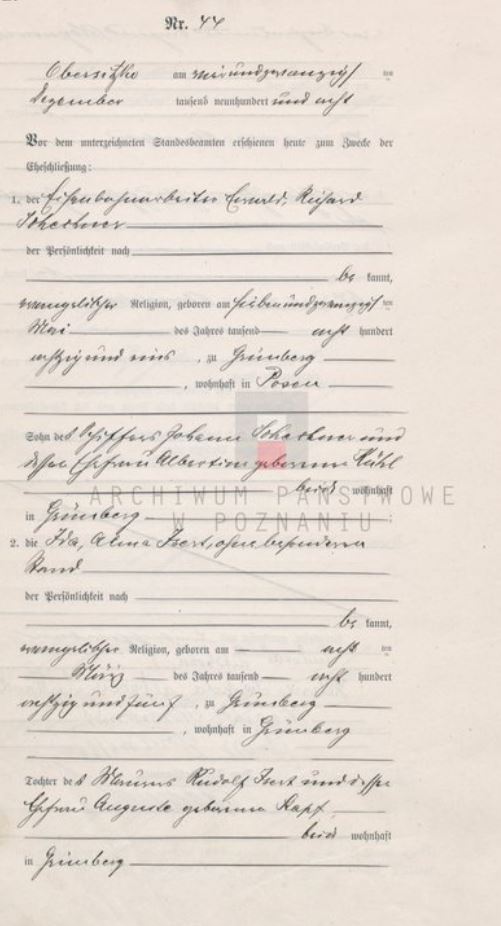 Nr. 44
Obersitzko am vierundzwanzigsten
Dezember tausend neunhundert und acht
Vor dem unterzeichneten Standesbeamten erschienen heute zum Zwecke der
Eheschließung:
1. der Eisenbahnarbeiter Ewald, Richard
der Persönlichkeit nach
be kannt,
evangelischer Religion, geboren am siebenundzwanzigsten
Mai des Jahres tausend acht hundert
achtzig und eins, zu Grünberg
, wohnhaft in Posen
Sohn des Schiffers Johann und
dessen Ehefrau Albertine geborene Kühl
beide wohnhaft
in Grünberg
ARCHIWUM PAŃSTWOWE
W POZNANIU
2. die Ida, Alma Isert, ohne besonderen
Stand
der Persönlichkeit nach
be kannt,
evangelischer Religion, geboren am achten
März des Jahres tausend acht hundert
achtzig und fünf, zu Grünberg
, wohnhaft in Grünberg
Tochter des Maurers Rudolf Isert und dessen
Ehefrau Auguste geborene Rapf
beide wohnhaft
in Grünberg